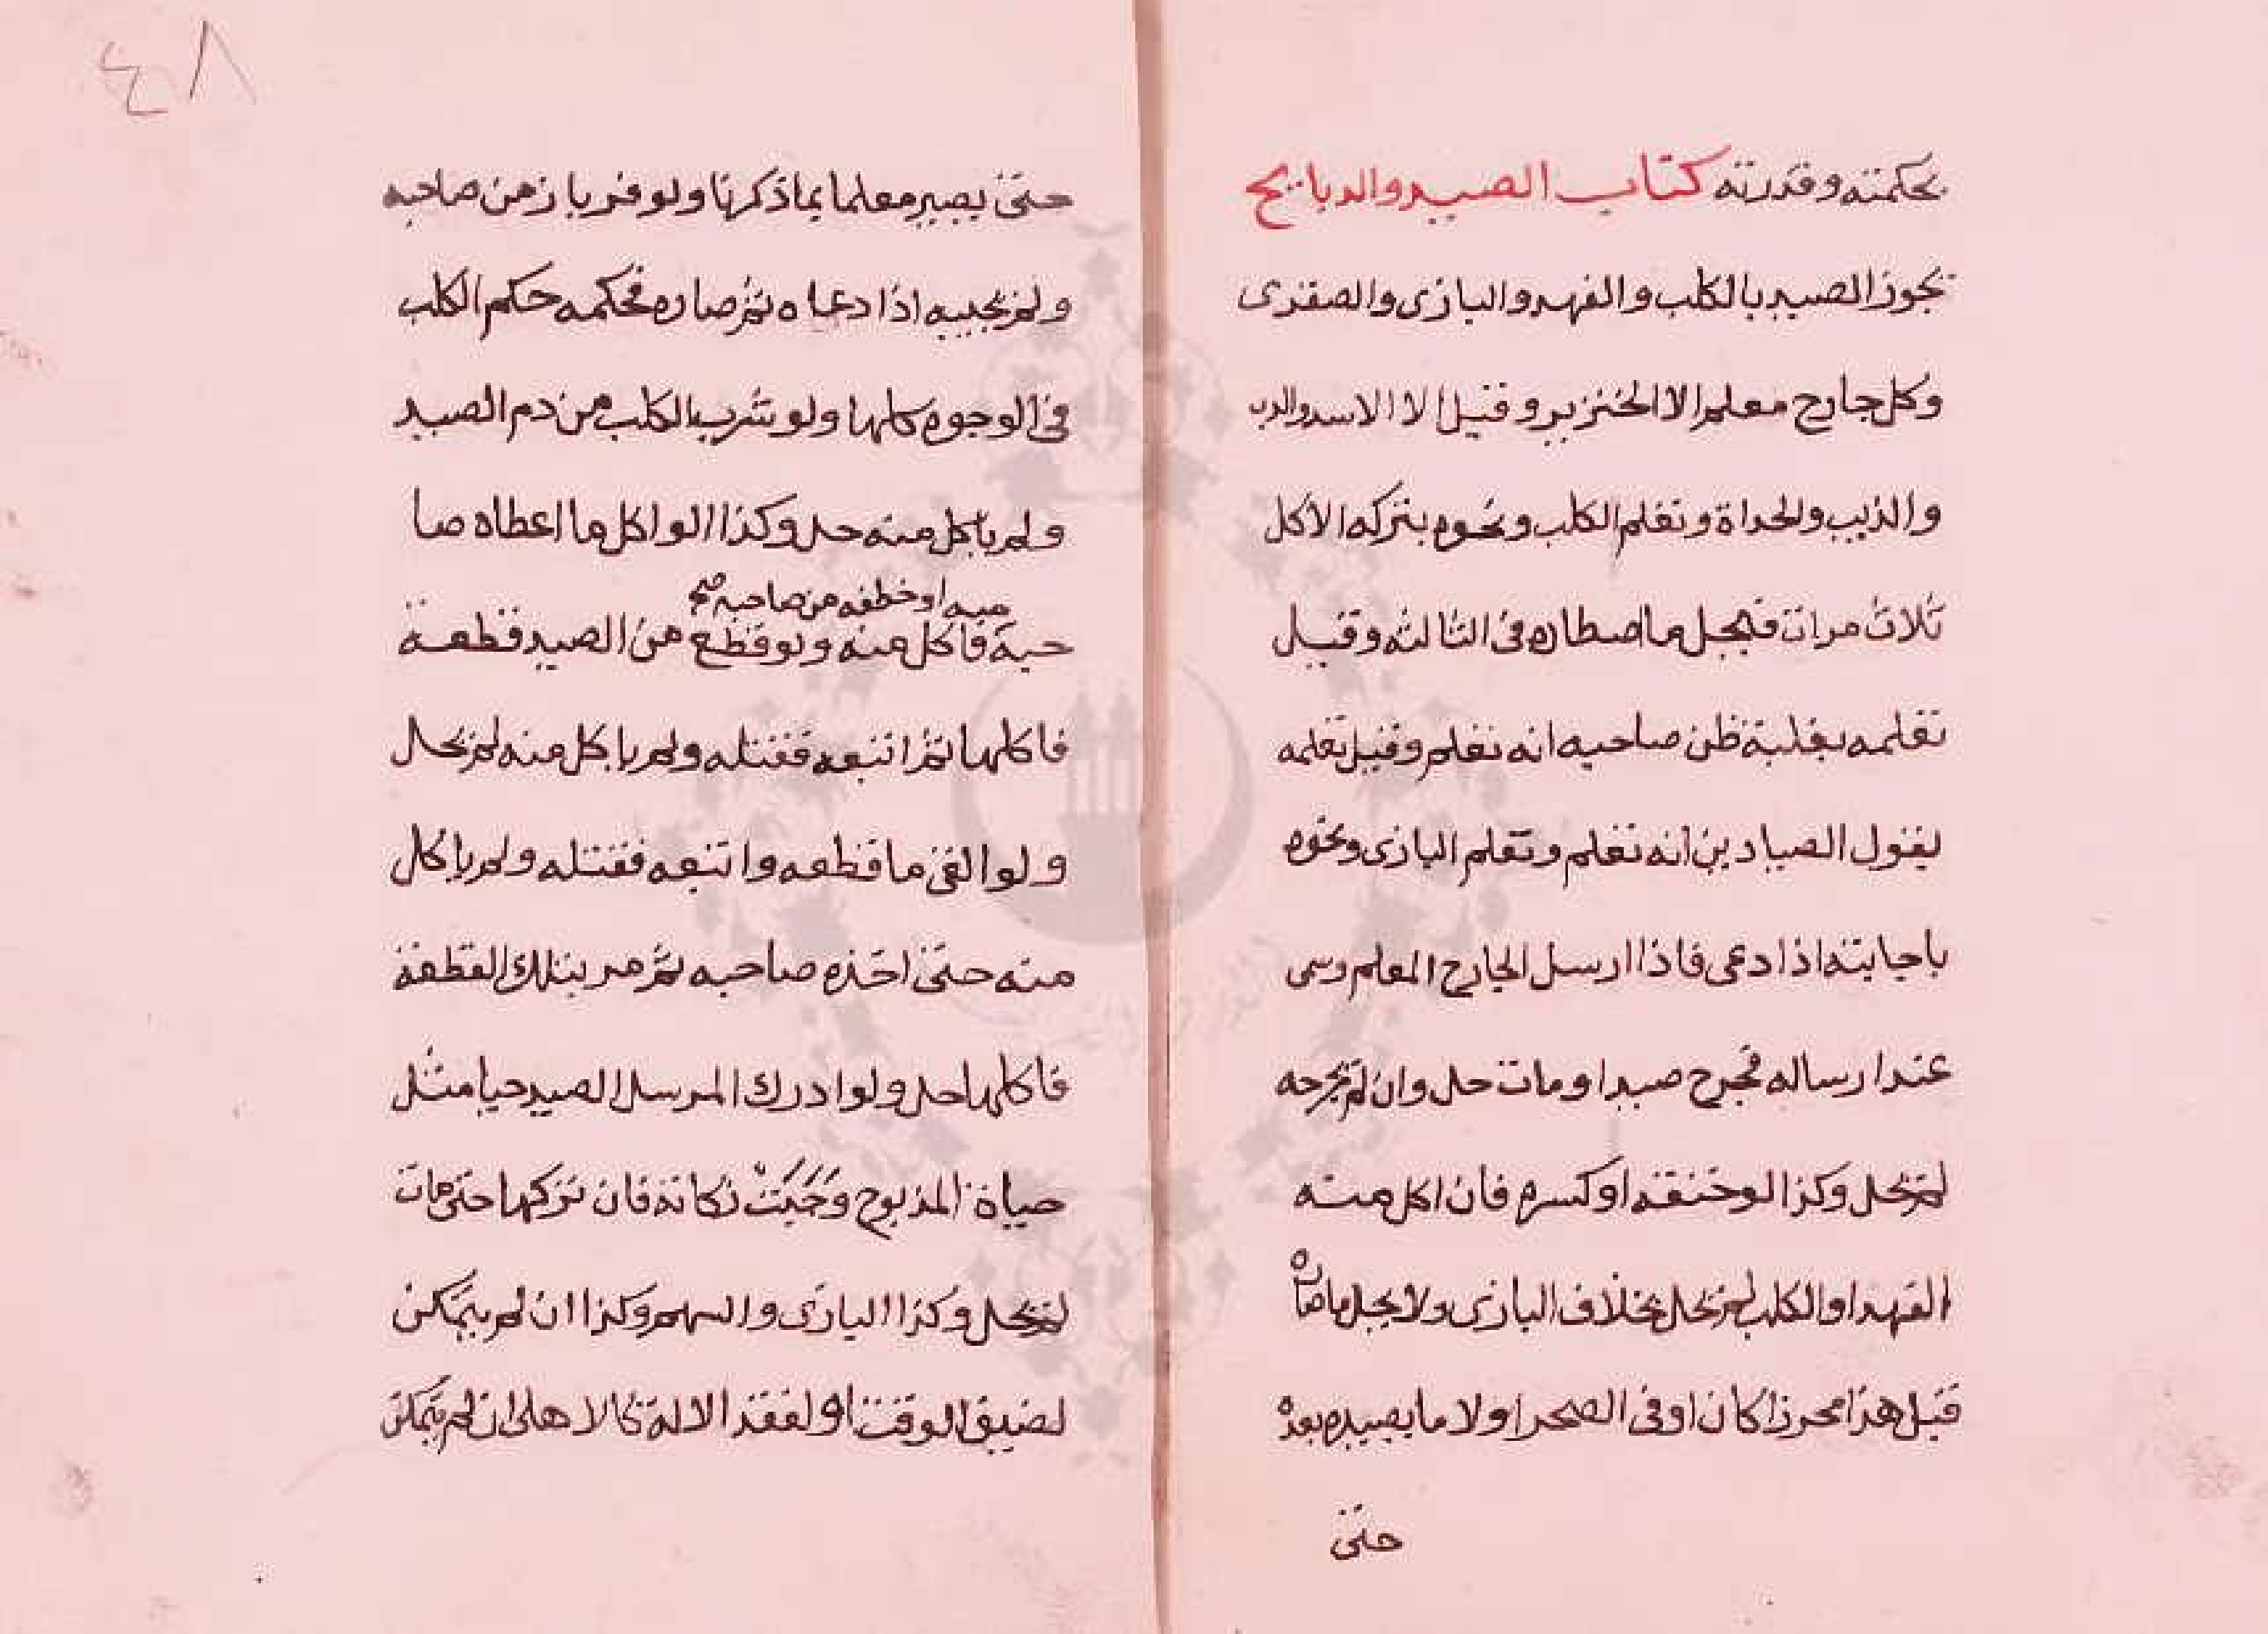 بحكمته وقدرته كتاب الصيد والدبايح
يجوز الصيد بالكلب والفهد والبازى والصقرى
وكل جارح معلم الا الخنزير وقيل الا الاسد والدب
والذيب والحداة وتعلم الكلب ونحوه بتركه الاكل
ثلاث مرات فيحل ما اصطاده فى الثالثه وقيل
تعلمه بغلبة ظن صاحبه انه تعلم وقيل تعلمه
بقول الصيادين انه تعلم وتعلم البازى ونحوه
باجابته اذا دعى فاذا ارسل الجارح المعلم وسمى
عند ارساله فجرح صيدا ومات حل وان لم يجرحه
لم يحل وكذا لو خنقه او كسره فان اكل منه
الفهد او الكلب لم يحل بخلاف البازى ولا يحل ما صاده
قبل هذا محرزا كان او فى الصحرا ولا ما يصيده بعده
حتى
٤٨
حتى يصير معلما بما ذكرنا ولو فر باز من صاحبه
ولم يجيبه اذا دعاه ثم صاده فحكمه حكم الكلب
فى الوجوه كلها ولو شرب الكلب من دم الصيد
ولم ياكل منه حل وكذا لو اكل ما اعطاه صا
منه او خطفه من صاحبه صح
حبه فاكل منه ولو قطع من الصيد قطعة
فاكلها ثم اتبعه فقتله ولم ياكل منه لم يحل
ولو القى ما قطعه واتبعه فقتله ولم ياكل
منه حتى اخذه صاحبه ثم مر بتلك القطعة
فاكلها حل ولو ادرك المرسل الصيد حيا مثل
حياة المذبوح وَجَبَتْ ذكاته فان تركها حتى مات
لم يحل وكذا البازى والسهم وكذا ان لم يتمكن
لضيق الوقت او لفقد الالة كالاهلى ان لم يتمكن